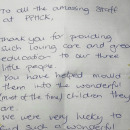 To all the amazing staff
at PPMCK.
Thank you for providing
such loving care and great
education to our three
little people.
You have helped mould
them into the wonderful
(most of the time) children they
are.
We were very lucky to
such a wonderful